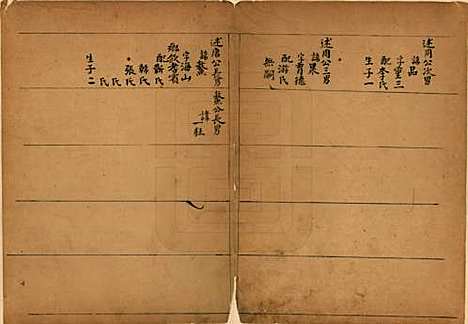 述周公次男
諱品
字重三
配李氏
生子一
述周公三男
諱果
字育德
配游氏
無嗣
述唐公長男
諱鰲
字海山
鄉飲考賓
配靳氏
韓氏
張氏
氏
氏
生子二
鰲公長男
諱一柱